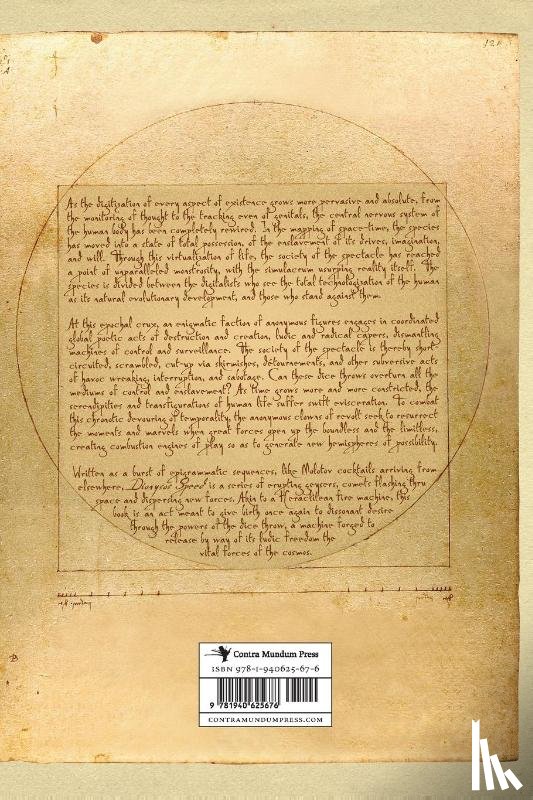 121
As the digitization of every aspect of existence grows more pervasive and absolute, from
the monitoring of thought to the tracking even of genitals, the central nervous system of
the human body has been completely rewired. In the mapping of space-time, the species
has moved into a state of total possession, of the enslavement of its drives, imagination,
and will. Through this virtualization of life, the society of the spectacle has reached
a point of unparalleled monstrosity, with the simulacrum usurping reality itself. The
species is divided between the digitalists who see the total technologization of the human
as its natural evolutionary development, and those who stand against them.
At this epochal crux, an enigmatic faction of anonymous figures engages in coordinated
global poetic acts of destruction and creation, ludic and radical capers, dismantling
machines of control and surveillance. The society of the spectacle is thereby short
circuited, scrambled, cut-up via skirmishes, détournements, and other subversive acts
of havoc wreaking, interruption, and sabotage. Can these dice throws overturn all the
mediums of control and enslavement? As time grows more and more constricted, the
serendipities and transfigurations of human life suffer swift evisceration. To combat
this chronotic devouring of temporality, the anonymous clowns of revolt seek to resurrect
the moments and marvels when great forces open up the boundless and the limitless,
creating combustion engines of play so as to generate new hemispheres of possibility.
Written as a burst of epigrammatic sequences, like Molotov cocktails arriving from
elsewhere, Dionysos Speed is a series of erupting geysers, comets flashing thru
space and dispersing new forces. Akin to a Heraclitean fire machine, this
book is an act meant to give birth once again to dissonant desire
through the powers of the dice throw, a machine forged to
release by way of its ludic freedom the
vital forces of the cosmos.
Contra Mundum Press
ISBN 978-1-940625-67-6
9 781940 625676
CONTRAMUNDUMPRESS.COM